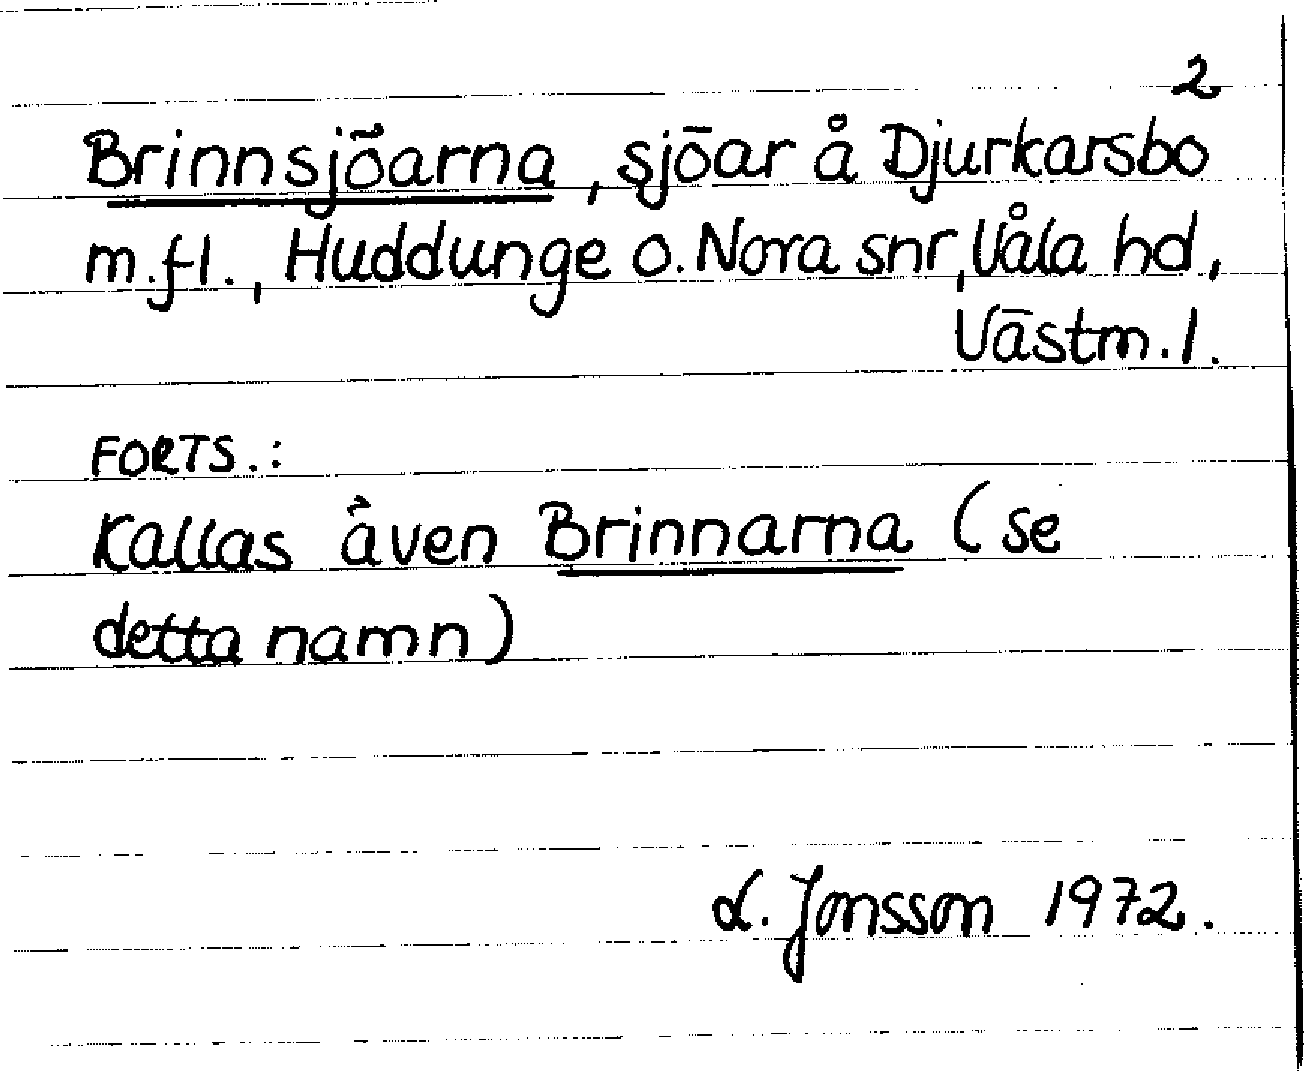 2
Brinnsjöarna, sjöar å Djurkarsbo
m.fl., Huddunge o. Nora snr, Våla hd,
Västm. l.
FORTS.:
Kallas även Brinnarna (se
detta namn)
L. Jonsson 1972.